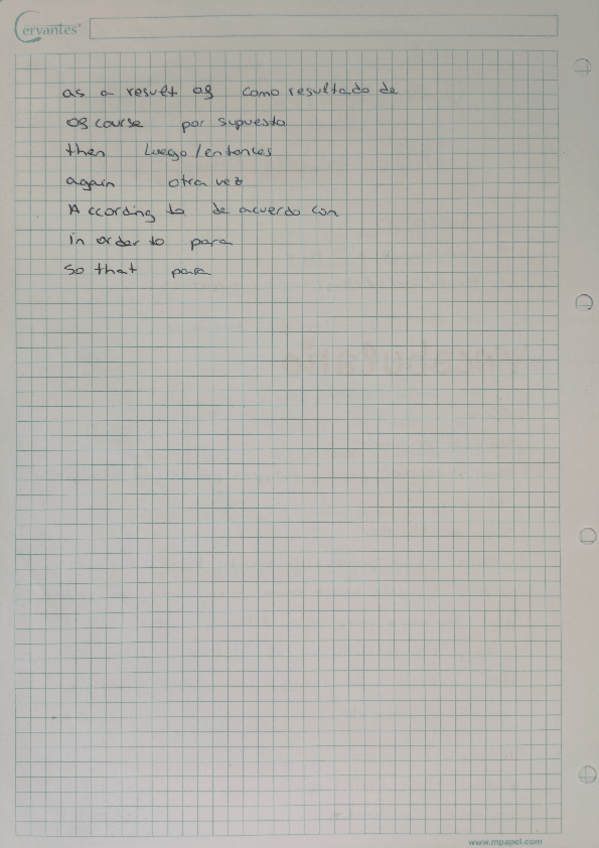 Cervantes
as a result of como resultado de
of course por supuesto
then Luego/entonces
again otra vez
According to de acuerdo con
in order to para
so that para
vocabulario
www.mpapel.com